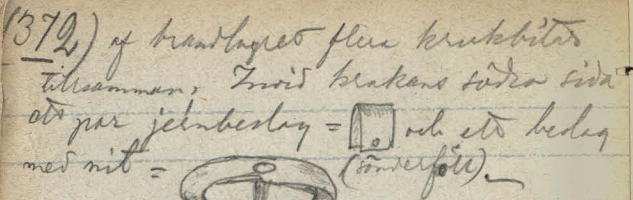 (372) af brandlagret flera krukbitar
tillsamman. Invid krukans södra sida
ett par jernbeslag = och ett beslag
med nit = (sönderföll).